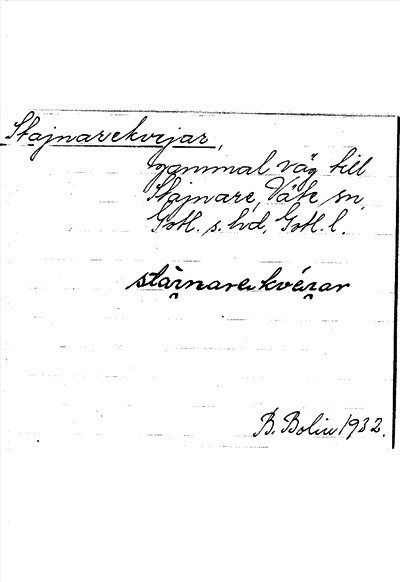 Stajnarekvejar,
gammal väg till
Stajnare, Väte sn,
Gotl. s. hd, Gotl. l.
B. Bolin 1932.